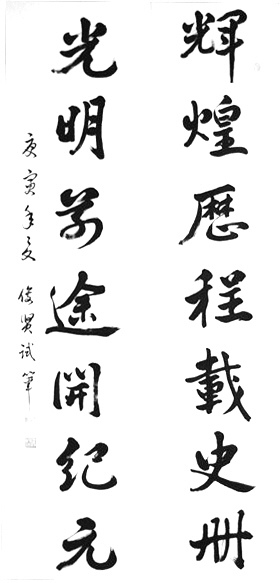 輝煌歷程載史册
光明前途開紀元
庚寅年夏 俊賢試筆